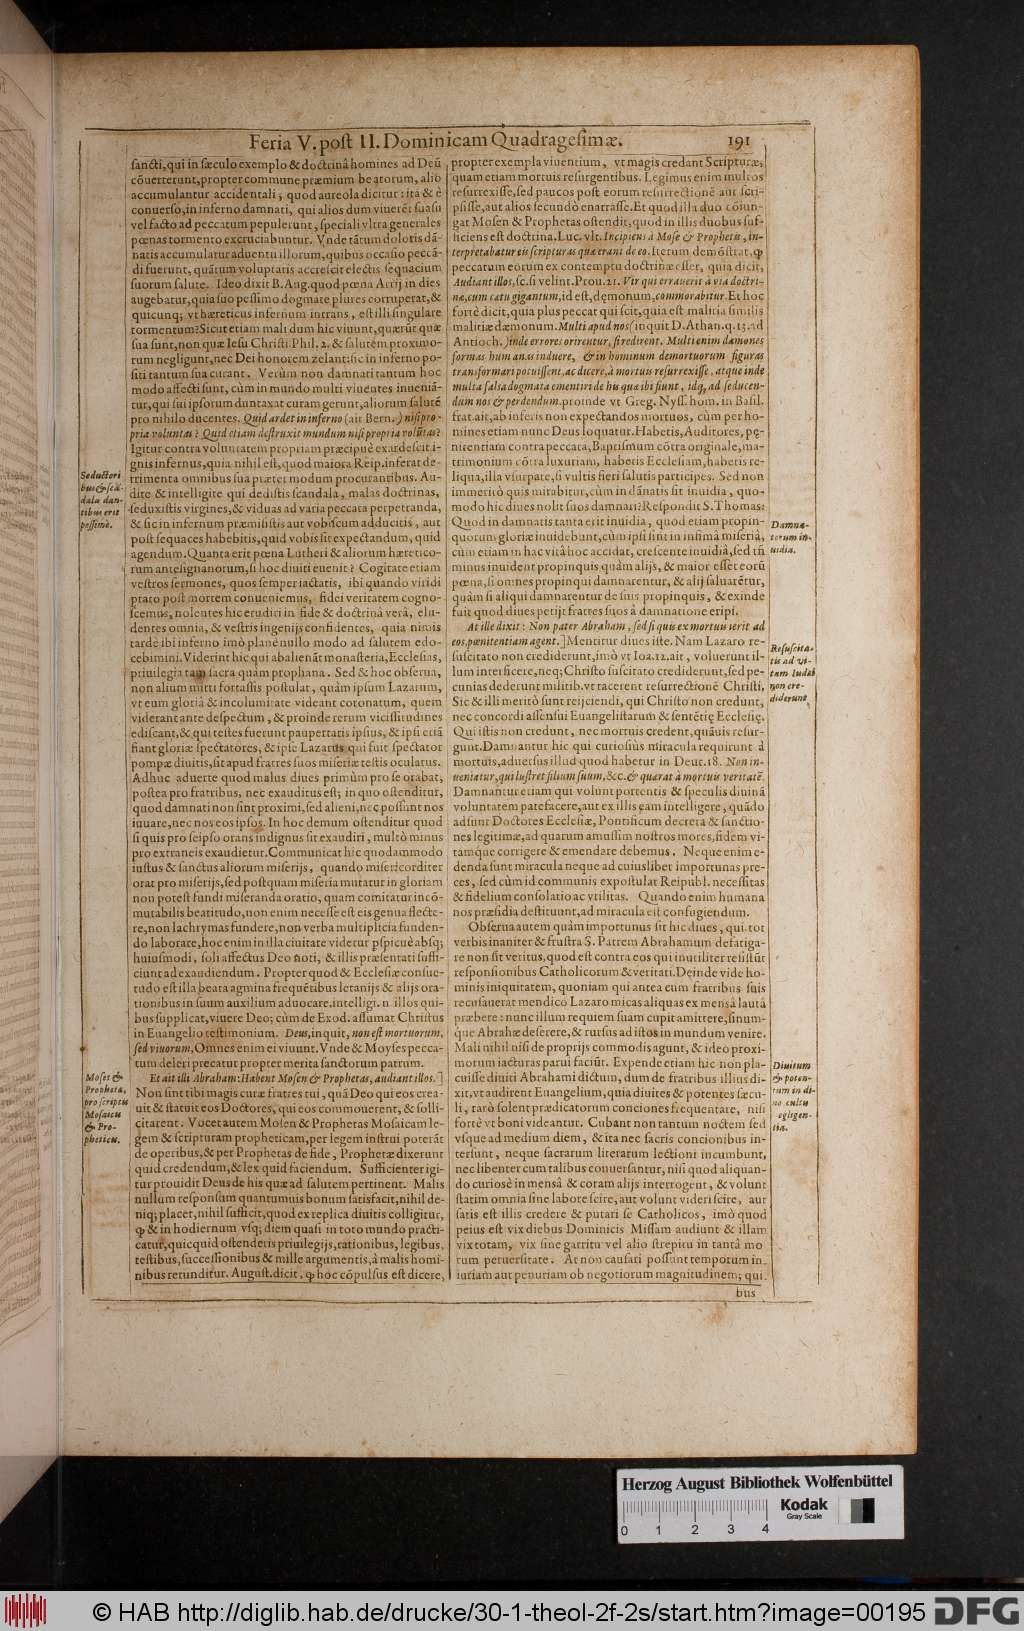 Feria V. poſt II. Dominicam Quadrageſimæ. 191
ſancti, qui in ſæculo exemplo & doctrinâ homines ad Deū
cōuerterunt, propter commune præmium beatorum, alio
accumulantur accidentali, quod aureola dicitur: ita & è
conuerſo, in inferno damnati, qui alios dum viuerēt ſuaſu
vel facto ad peccatum pepulerunt, ſpeciali vltra generales
pœnas tormento excruciabuntur. Vnde tātum doloris dā-
natis accumulatur aduentu illorum, quibus occaſio peccā-
di fuerunt, quātum voluptatis accreſcit electis ſequacium
ſuorum ſalute. Ideo dixit B. Aug. quod pœna Arrij in dies
augebatur, quia ſuo peſſimo dogmate plures corruperat, &
quicunq; vt hæreticus infernum intrans, eſt illi ſingulare
tormentum? Sicut etiam mali dum hic viuunt, quærūt quæ
ſua ſunt, non quæ Ieſu Chriſti Phil. 2. & ſalutem proximo-
rum negligunt, nec Dei honorem zelant: ſic in inferno po-
ſiti tantum ſua curant. Verùm non damnati tantum hoc
modo affecti ſunt, cùm in mundo multi viuentes inueniā-
tur, qui ſui ipſorum duntaxat curam gerunt, aliorum ſalutē
pro nihilo ducentes. Quid ardet in inferno (ait Bern.) niſi pro-
pria voluntas? Quid etiam deſtruxit mundum niſi propria volūtas?
Igitur contra voluntatem propriam præcipuè exardeſcit i-
gnis infernus, quia nihil eſt, quod maiora Reip. inferat de-
trimenta omnibus ſua præter modum procurantibus. Au-
dite & intelligite qui dediſtis ſcandala, malas doctrinas,
ſeduxiſtis virgines, & viduas ad varia peccata perpetranda,
& ſic in infernum præmiſiſtis aut vobiſcum adducitis, aut
poſt ſequaces habebitis, quid vobis ſit expectandum, quid
agendum. Quanta erit pœna Lutheri & aliorum hæretico-
rum anteſignanorum, ſi hoc diuiti euenit? Cogitate etiam
veſtros ſermones, quos ſemper iactatis, ibi quando viridi
prato poſt mortem conueniemus, fidei veritatem cogno-
ſcemus, nolentes hic erudiri in fide & doctrinâ verâ, elu-
dentes omnia, & veſtris ingenijs confidentes, quia nimis
tardè ibi inferno imò planè nullo modo ad ſalutem edo-
cebimini. Viderint hic qui abalienāt monaſteria, Eccleſias,
priuilegia tam ſacra quàm prophana. Sed & hoc obſerua,
non alium mitti fortaſſis poſtulat, quàm ipſum Lazarum,
vt eum gloriâ & incolumitate videant coronatum, quem
viderant ante deſpectum, & proinde rerum viciſſitudines
ediſcant, & qui teſtes fuerunt paupertatis ipſius, & ipſi etiā
fiant gloriæ ſpectatores, & ipſe Lazarus qui fuit ſpectator
pompæ diuitis, ſit apud fratres ſuos miſeriæ teſtis oculatus.
Adhuc aduerte quod malus diues primùm pro ſe orabat,
poſtea pro fratribus, nec exauditus eſt; in quo oſtenditur,
quod damnati non ſint proximi, ſed alieni, nec poſſunt nos
iuuare, nec nos eos ipſos. In hoc demum oſtenditur quod
ſi quis pro ſeipſo orans indignus ſit exaudiri, multò minus
pro extraneis exaudietur. Communicat hic quodammodo
iuſtus & ſanctus aliorum miſerijs, quando miſericorditer
orat pro miſerijs, ſed poſtquam miſeria mutatur in gloriam
non poteſt fundi miſeranda oratio, quam comitatur incō-
mutabilis beatitudo, non enim neceſſe eſt eis genua flecte-
re, non lachrymas fundere, non verba multiplicia funden-
do laborare, hoc enim in illa ciuitate videtur ꝑſpicuè abſq;
huiuſmodi, ſoli affectus Deo noti, & illis præſentati ſuffi-
ciunt ad exaudiendum. Propter quod & Eccleſiæ conſue-
tudo eſt illa beata agmina frequētibus letanijs & alijs ora-
tionibus in ſuum auxilium aduocare, intelligi.n illos qui-
bus ſupplicat, viuere Deo; cùm de Exod. aſſumat Chriſtus
in Euangelio teſtimonium. Deus, inquit, non eſt mortuorum,
ſed viuorum, Omnes enim ei viuunt. Vnde & Moyſes pecca-
tum deleri precatur propter merita ſanctorum patrum.
Et ait illi Abraham: Habent Moſen & Prophetas, audiant illos.]
Non ſunt tibi magis curæ fratres tui, quā Deo qui eos crea-
uit & ſtatuit eos Doctores, qui eos commouerent, & ſolli-
citarent. Vocet autem Moſen & Prophetas Moſaicam le-
gem & ſcripturam propheticam, per legem inſtrui poterāt
de operibus, & per Prophetas de fide, Prophetæ dixerunt
quid credendum, & lex quid faciendum. Sufficienter igi-
tur prouidit Deus de his quæ ad ſalutem pertinent. Malis
nullum reſponſum quantumuis bonum ſatisfacit, nihil de-
niq; placet, nihil ſufficit, quod ex replica diuitis colligitur,
ꝙ & in hodiernum vſq; diem quaſi in toto mundo practi-
catur, quicquid oſtenderis priuilegijs, rationibus, legibus,
teſtibus, ſucceſſionibus & mille argumentis, à malis homi-
nibus retunditur. Auguſt. dicit, ꝙ hoc cōpulſus eſt dicere,
Seductori
bus & ſcā-
dala dan-
tibus erit
peſſimè.
Moſes &
Propheta,
pro ſcriptis
Moſaicis
& Pro-
pheticis.
propter exempla viuentium, vt magis credant Scripturæ,
quam etiam mortuis reſurgentibus. Legimus enim multos
reſurrexiſſe, ſed paucos poſt eorum reſurrectionē aut ſcri-
pſiſſe, aut alios ſecundò enarraſſe. Et quod illa duo cōiun-
gat Moſen & Prophetas oſtendit, quod in illis duobus ſuf-
ficiens eſt doctrina. Luc. vlt. Incipiens à Moſe & Prophetis, in-
terpretabatur eis ſcripturas quæ erant de eo. Iterum demōſtrat, ꝙ
peccatum eorum ex contemptu doctrinæ eſſet, quia dicit,
Audiant illos, ſc. ſi velint. Prou. 21. Vir qui errauerit à via doctri-
næ, cum cœtu gigantum, id eſt, dęmonum, commorabitur. Et hoc
fortè dicit, quia plus peccat qui ſcit, quia eſt malitia ſimilis
malitiæ dæmonum. Multi apud nos (inquit D. Athan. q. 13. ad
Antioch.) inde errores orirentur, ſi redirent. Multi enim dæmones
formas humanas induere, & in hominum demortuorum figuras
transformari potuiſſent, ac dicere, à mortuis reſurrexiſſe, atque inde
multa falſa dogmata ementiri de his quæ ibi fiunt, idq, ad ſeducen-
dum nos & perdendum. proinde vt Greg. Nyſſ. hom. in Baſil.
frat. ait, ab inferis non expectandos mortuos, cùm per ho-
mines etiam nunc Deus loquatur. Habetis, Auditores, pę-
nitentiam contra peccata, Baptiſmum cōtra originale, ma-
trimonium cōtra luxuriam, habetis Eccleſiam, habetis re-
liqua, illa vſurpate, ſi vultis fieri ſalutis participes. Sed non
immeritò quis mirabitur, cùm in dānatis ſit inuidia, quo-
modo hic diues nolit ſuos damnari? Reſpondit S. Thomas:
Quod in damnatis tanta erit inuidia, quod etiam propin-
quorum gloriæ inuidebunt, cùm ipſi ſint in infimâ miſeriâ,
cùm etiam in hac vitâ hoc accidat, creſcente inuidiâ, ſed tñ
minus inuident propinquis quàm alijs, & maior eſſet eorū
pœna, ſi omnes propinqui damnarentur, & alij ſaluarētur,
quàm ſi aliqui damnarentur de ſuis propinquis, & exinde
fuit quod diues petijt fratres ſuos à damnatione eripi.
At ille dixit: Non pater Abraham, ſed ſi quis ex mortuis ierit ad
eos, pœnitentiam agent.] Mentitur diues iſte. Nam Lazaro re-
ſuſcitato non crediderunt, imò vt Ioa. 12. ait, voluerunt il-
lum interficere, neq; Chriſto ſuſcitato crediderunt, ſed pe-
cunias dederunt militib. vt tacerent reſurrectionē Chriſti,
Sic & illi meritò ſunt reijciendi, qui Chriſto non credunt,
nec concordi aſſenſui Euangeliſtarum & ſentētię Eccleſię.
Qui iſtis non credunt, nec mortuis credent, quāuis reſur-
gunt. Damnantur hic qui curioſiùs miracula requirunt à
mortuis, aduerſus illud quod habetur in Deut. 18. Non in-
ueniatur, qui luſtret filium ſuum, &c. & quærat à mortuis veritatē.
Damnantur etiam qui volunt portentis & ſpeculis diuinā
voluntatem patefacere, aut ex illis eam intelligere, quādo
adſunt Doctores Eccleſiæ, Pontificum decreta & ſanctio-
nes legitimæ, ad quarum amuſſim noſtros mores, fidem vi-
tamque corrigere & emendare debemus. Neque enim e-
denda ſunt miracula neque ad cuiuslibet importunas pre-
ces, ſed cùm id communis expoſtulat Reipubl. neceſſitas
& fidelium conſolatio ac vtilitas. Quando enim humana
nos præſidia deſtituunt, ad miracula eſt confugiendum.
Obſerua autem quàm importunus ſit hic diues, qui tot
verbis inaniter & fruſtra S. Patrem Abrahamum defatiga-
re non ſit veritus, quod eſt contra eos qui inutiliter reſiſtūt
reſponſionibus Catholicorum & veritati. Deinde vide ho-
minis iniquitatem, quoniam qui antea cum fratribus ſuis
recuſauerat mendico Lazaro micas aliquas ex mensâ lautâ
præbere: nunc illum requiem ſuam cupit amittere, ſinum-
que Abrahæ deſerere, & rurſus ad iſtos in mundum venire.
Mali nihil niſi de proprijs commodis agunt, & ideo proxi-
morum iacturas parui faciūt. Expende etiam hic non pla-
cuiſſe diuiti Abrahami dictum, dum de fratribus illius di-
xit, vt audirent Euangelium, quia diuites & potentes ſæcu-
li, rarò ſolent prædicatorum conciones frequentare, niſi
fortè vt boni videantur. Cubant non tantum noctem ſed
vſque ad medium diem, & ita nec ſacris concionibus in-
terſunt, neque ſacrarum literarum lectioni incumbunt,
nec libenter cum talibus conuerſantur, niſi quod aliquan-
do curioſè in mensâ & coram alijs interrogent, & volunt
ſtatim omnia ſine labore ſcire, aut volunt videri ſcire, aut
ſatis eſt illis credere & putari ſe Catholicos, imò quod
peius eſt vix diebus Dominicis Miſſam audiunt & illam
vix totam, vix ſine garritu vel alio ſtrepitu in tantâ mo
rum peruerſitate. At non cauſati poſſunt temporum in-
iuriam aut penuriam ob negotiorum magnitudinem; qui
bus
Damna-
torum in-
uidia.
Reſuſcita-
tis ad vi-
tam Iudæi
non cre-
diderunt.
Diuitum
& poten-
tum in di-
no cultu
egligen-
tia.
Herzog August Bibliothek Wolfenbüttel
0 1 2 3 4
Kodak
Gray Scale
© HAB http://diglib.hab.de/drucke/30-1-theol-2f-2s/start.htm?image=00195
DFG